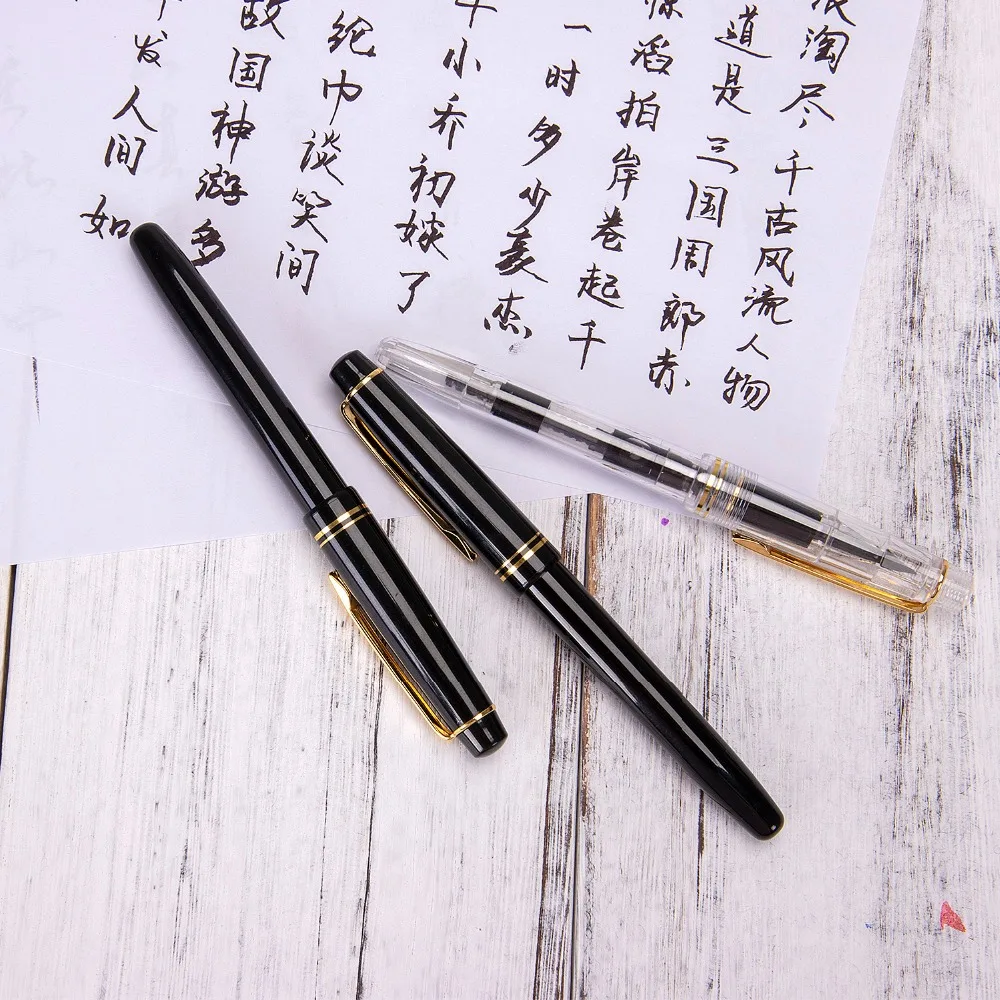 浪淘尽千古风流人物
道是三国周郎赤
惊滔拍岸卷起千
一时多少豪杰
小乔初嫁了
纶巾谈笑间
故国神游多
发人间如